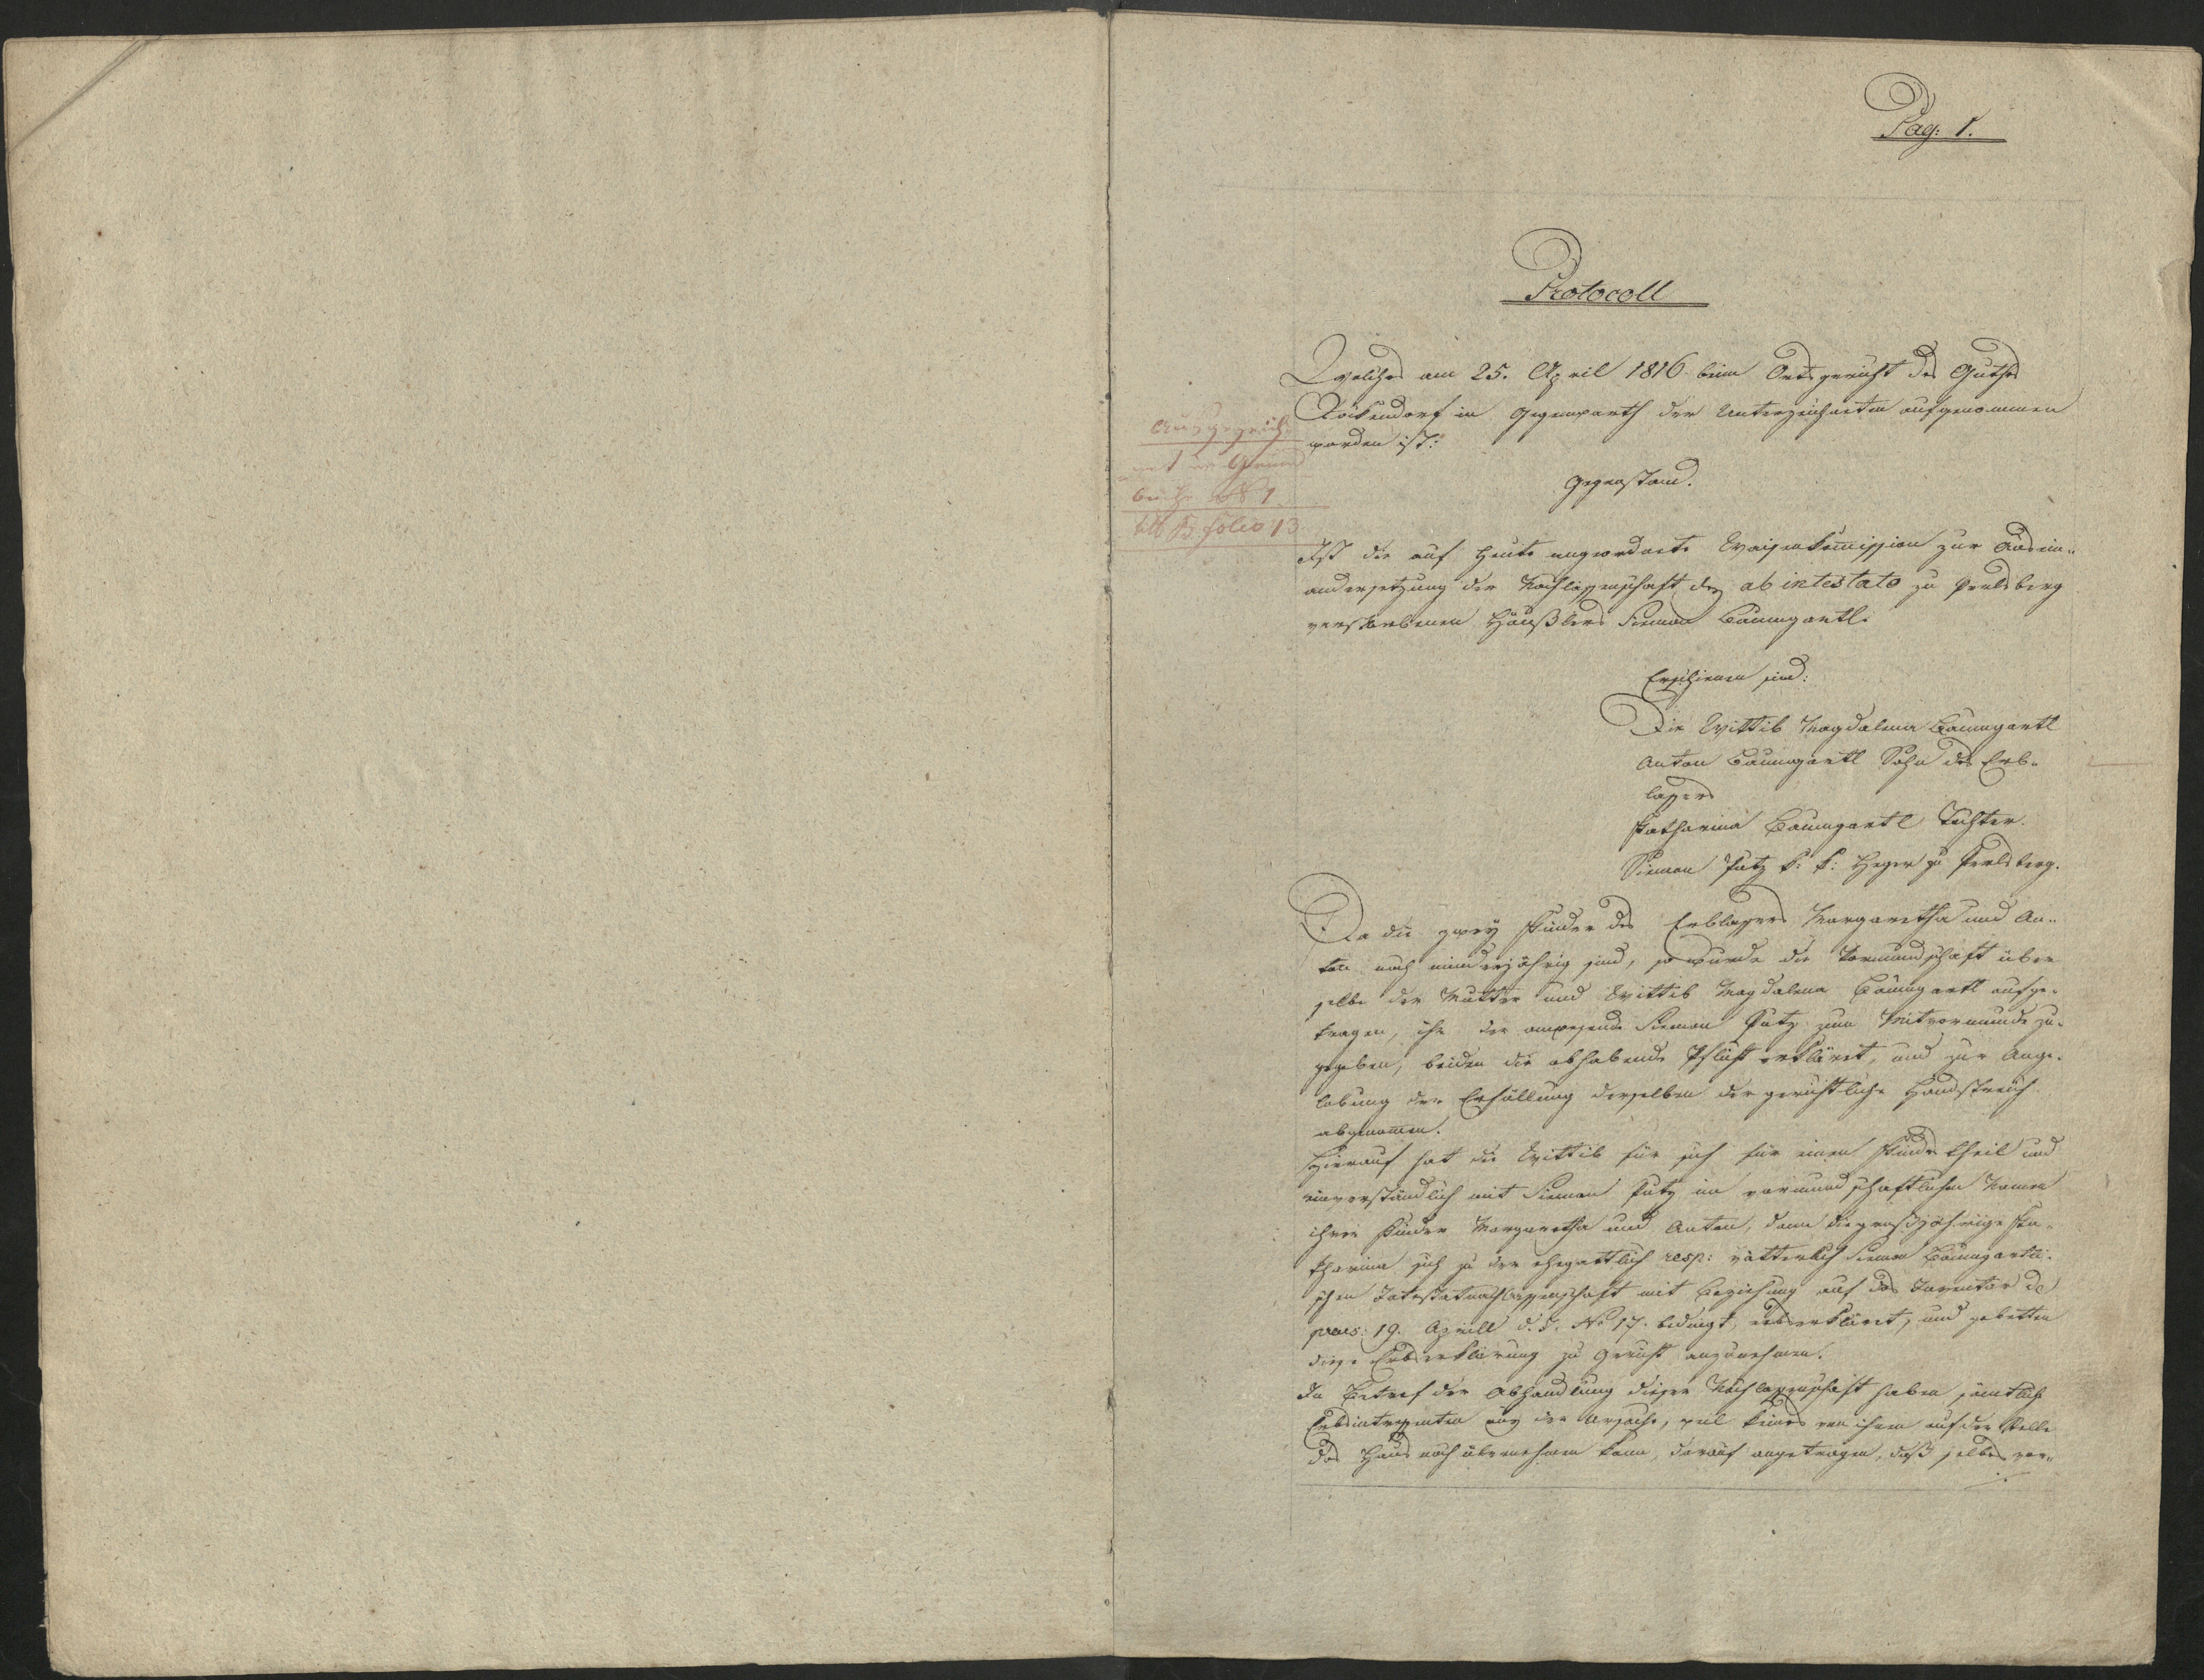 Pag: 1.
Protocoll
Welches am 25. April 1816 beim Ortsgericht des Guths
Röckendorf in Gegenwarth der Unterzeichneten aufgenommen
worden ist:
Ausgezeich-
net im Grund
buche N 1
lit B folio 13
Gegenstand.
Ist die auf heute angeordnete Waisenkommission zur Ausein-
andersetzung der Nachlassenschaft des ab intestato zu Perlsberg
verstorbenen Häußlers Siemon Baumgartl.
Erschienen sind:
Die Wittib Magdalena Baumgartl
Anton Baumgartl Sohn des Erb-
lassers
Katharina Baumgartl Tochter.
Siemon Putz k: k: Heger zu Perlsberg.
Da die zwey Kinder des Erblassers Margaretha und An-
ton noch minderjährig sind, so wurde die Vormundschaft über
selbe der Mutter und Wittib Magdalena Baumgartl aufge-
tragen, ihr der anwesende Siemon Putz zum Mitvormunde zu-
gegeben, beiden die obhabende Pflicht erkläret, und zur Ange-
lobung der Erfüllung derselben der gerichtliche Handstreich
abgenommen.
Hierauf hat die Wittib für sich für einen Kindstheil und
einverständlich mit Siemon Putz im vormundschaftlichen Namen
ihrer Kinder Margaretha und Anton, dann die großjährige Ka-
tharina sich zu der ehegattlich resp: vätterlich Siemon Baumgartli-
schen Intestatnachlassenschaft mit Beziehung auf das Inventar de
praes: 19. Aprill d. J. No 17. bedingt erbserkläret, und gebetten
diese Erbserklärung zu Gericht anzunehmen.
In Betref der Abhandlung dieser Nachlassenschaft haben sämtliche
Erbsinteressenten aus der Ursache, weil keines von ihnen auf der Stelle
das Haus noch übernehmen kann, darauf angetragen, daß selbes vor-
./.